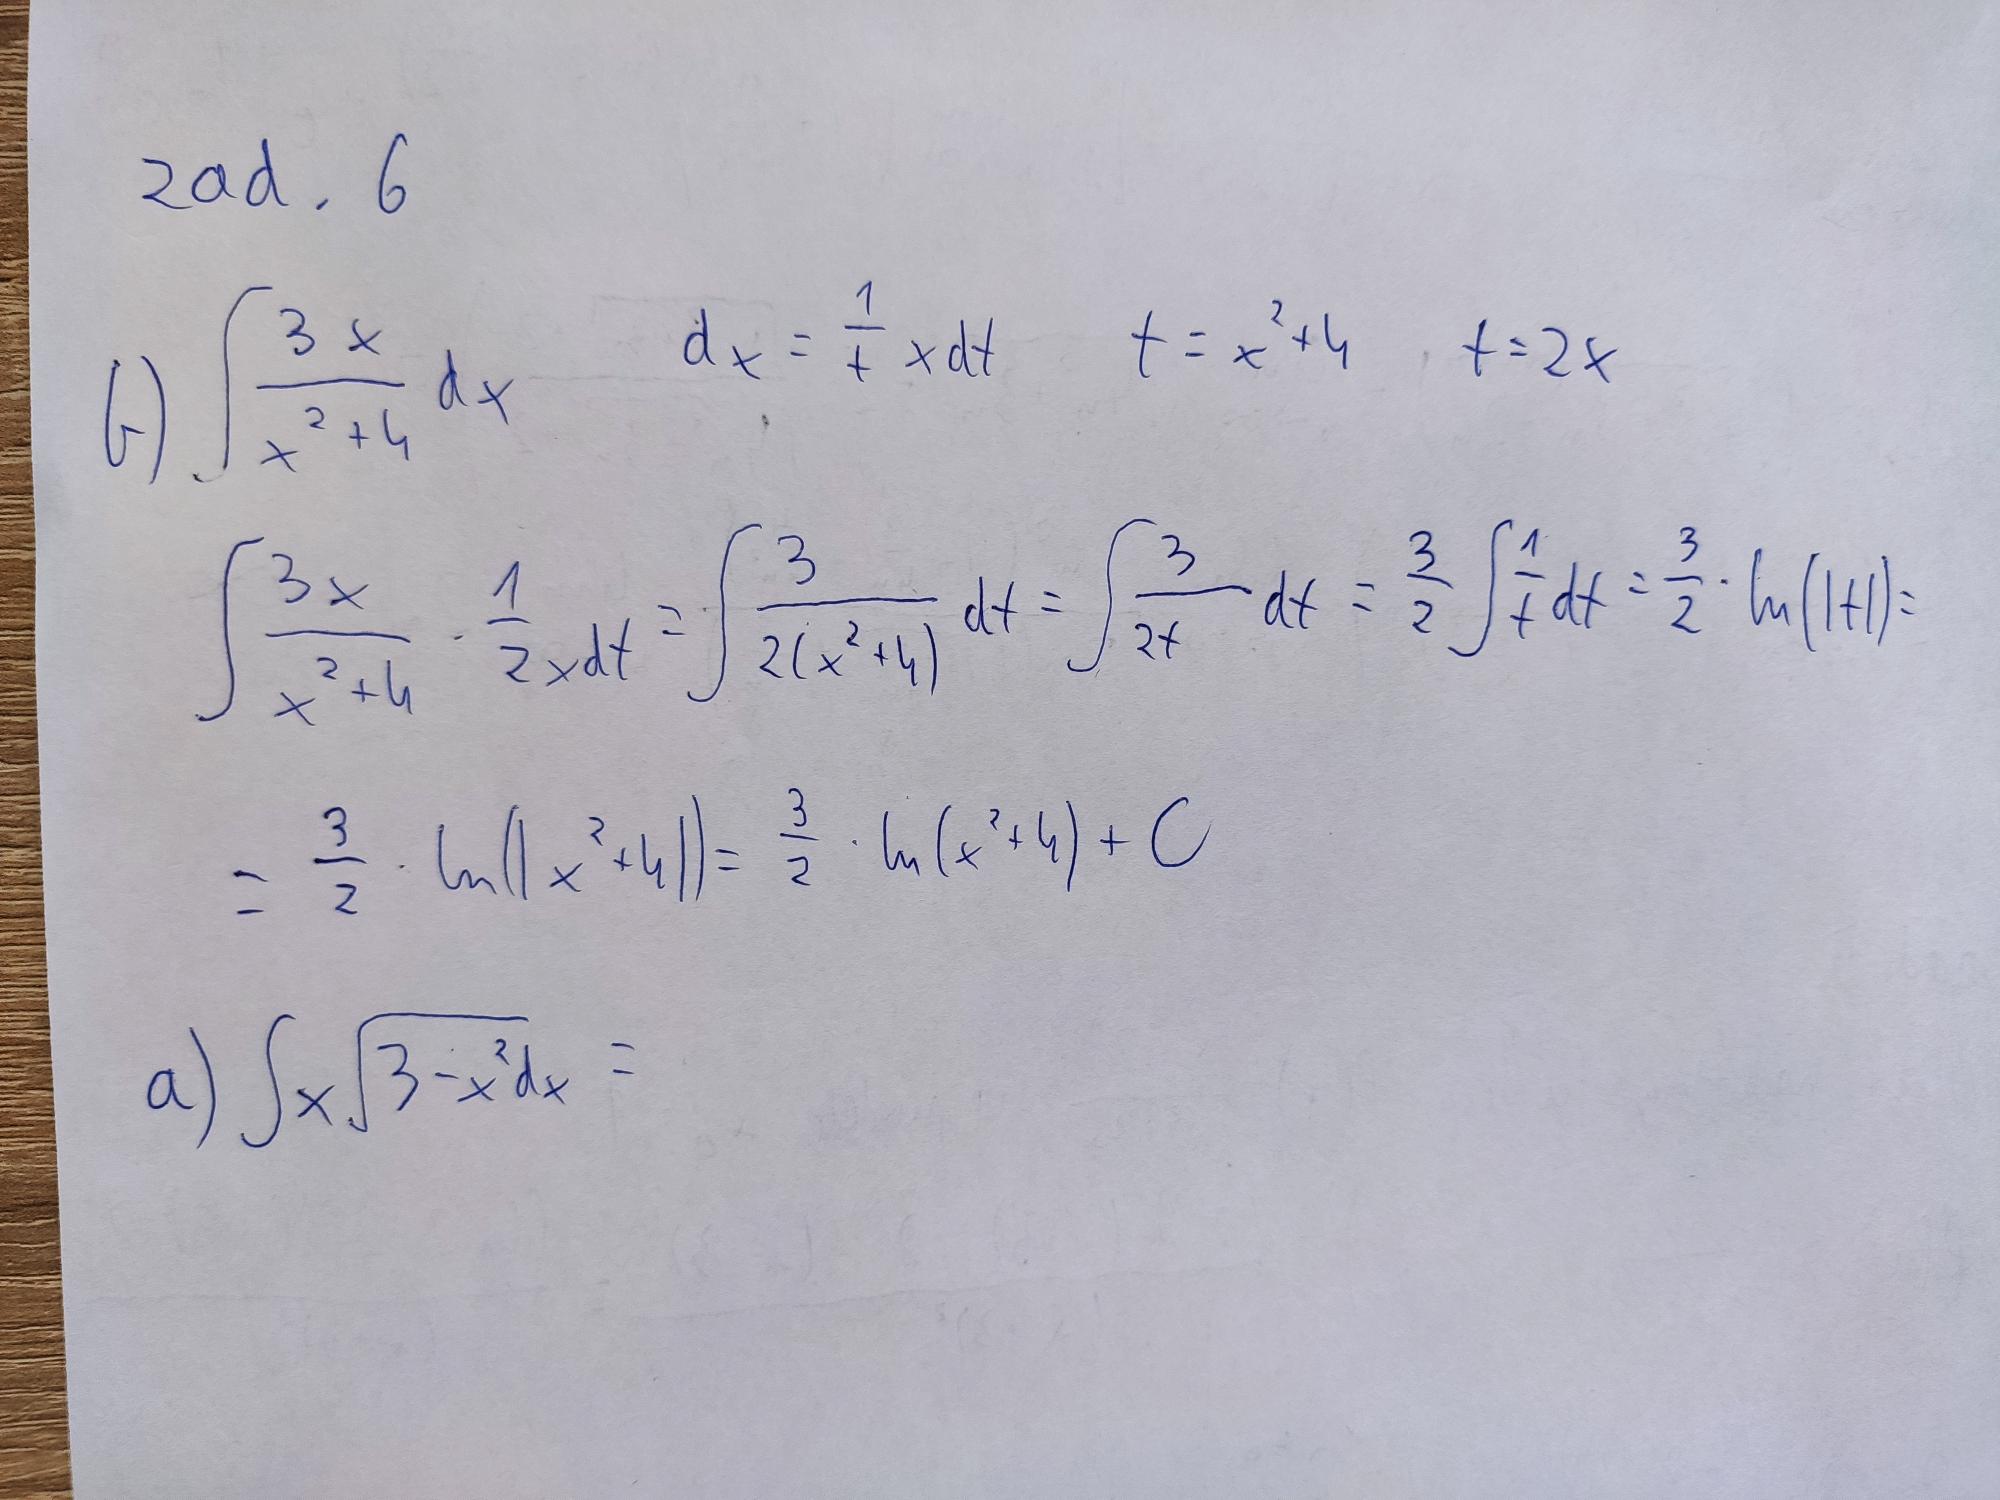 zad. 6
b) ∫ 3x/(x²+4) dx    dx = 1/t xdt    t = x²+4    t=2x
∫ 3x/(x²+4) · 1/2xdt = ∫ 3/(2(x²+4)) dt = ∫ 3/2t dt = 3/2 ∫ 1/t dt = 3/2 · ln(|t|) =
= 3/2 · ln(|x²+4|) = 3/2 · ln(x²+4) + C
a) ∫x√(3-x²dx) =